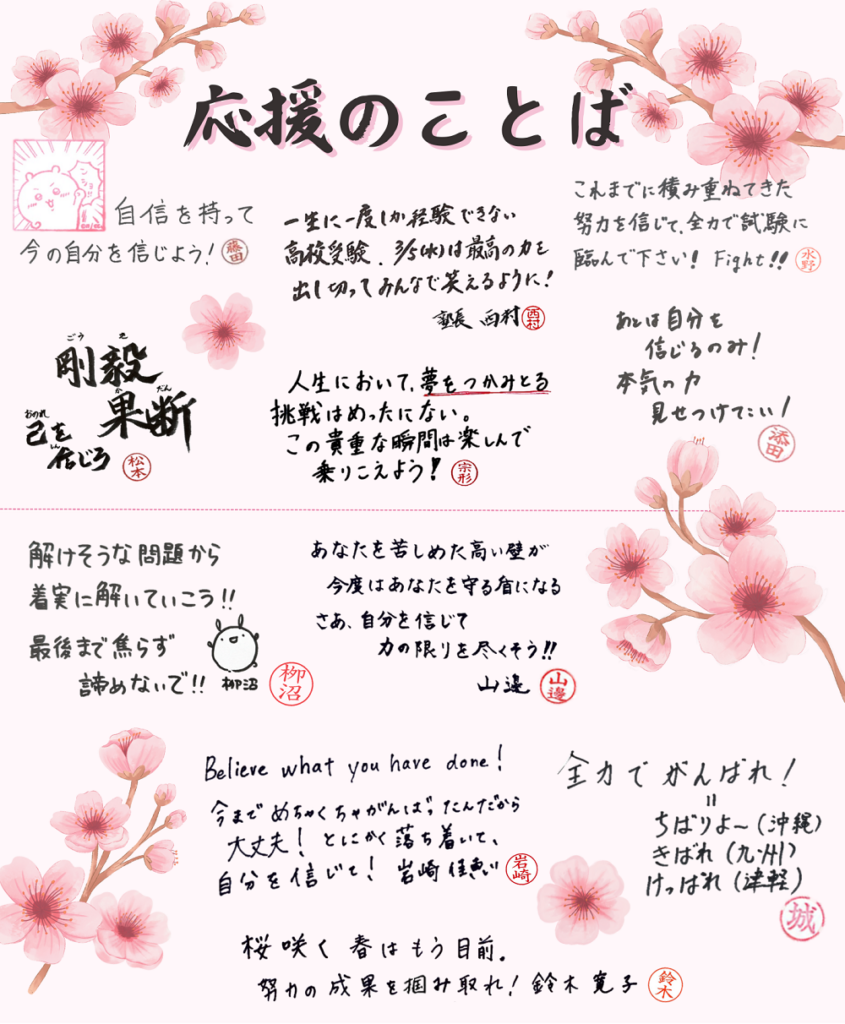 応援のことば
自信を持って
今の自分を信じよう!
藤田
一生に一度しか経験できない
高校受験. 3/5(水)は最高の力を
出し切ってみんなで笑えるように!
塾長 西村
西村
これまでに積み重ねてきた
努力を信じて、全力で試験に
臨んで下さい! Fight!!
水野
ごう き
剛毅
か だん
果断
おのれ
己を
しん
信じろ
松本
人生において、夢をつかみとる
挑戦はめったにない。
この貴重な瞬間は楽しんで
乗りこえよう!
宗形
あとは自分を
信じるのみ!
本気の力
見せつけてこい!
添田
解けそうな問題から
着実に解いていこう!!
最後まで焦らず
諦めないで!!
柳沼
柳沼
あなたを苦しめた高い壁が
今度はあなたを守る盾になる
さあ、自分を信じて
力の限りを尽くそう!!
山邉
山邉
Believe what you have done!
今までめちゃくちゃがんばったんだから
大丈夫! とにかく落ち着いて、
自分を信じて! 岩崎佳恵
岩崎
全力でがんばれ!
=
ちばりよ〜(沖縄)
きばれ(九州)
けっぱれ(津軽)
城
桜咲く春はもう目前.
努力の成果を掴み取れ! 鈴木寛子
鈴木